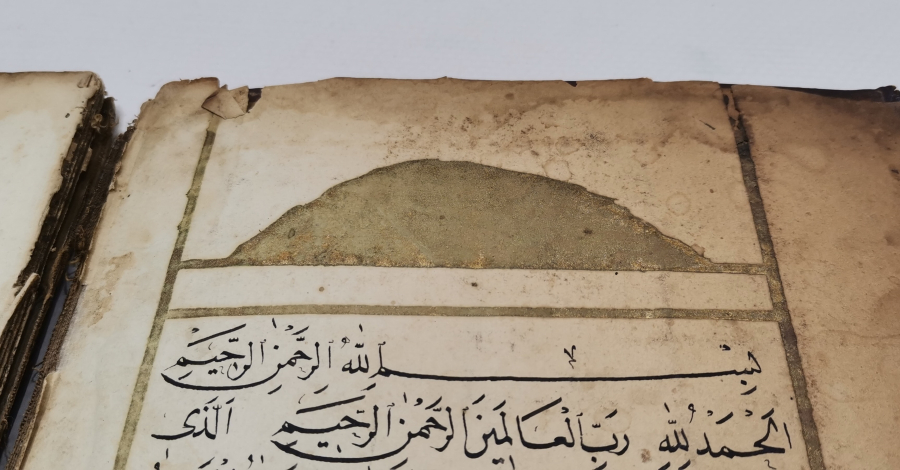 بِسْمِ اللّٰهِ الرَّحْمٰنِ الرَّحِيْمِ
اَلْحَمْدُ لِلّٰهِ رَبِّ الْعَالَمِيْنَ الرَّحْمٰنِ الرَّحِيْمِ اَلَّذِى